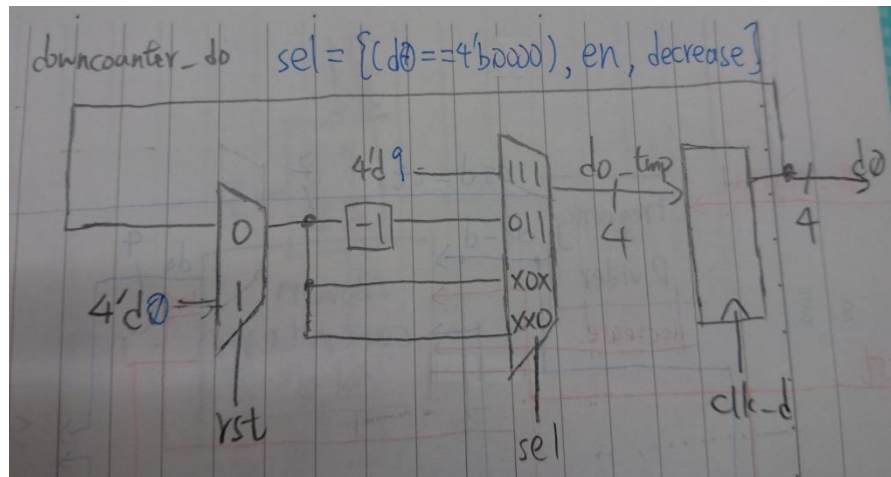 downcounter_do sel = {(d0==4'b0000), en, decrease}
4'd9
111
do_tmp
d0
0
-1
011
4
4
4'd0
1
x0x
xx0
rst
sel
clk_d